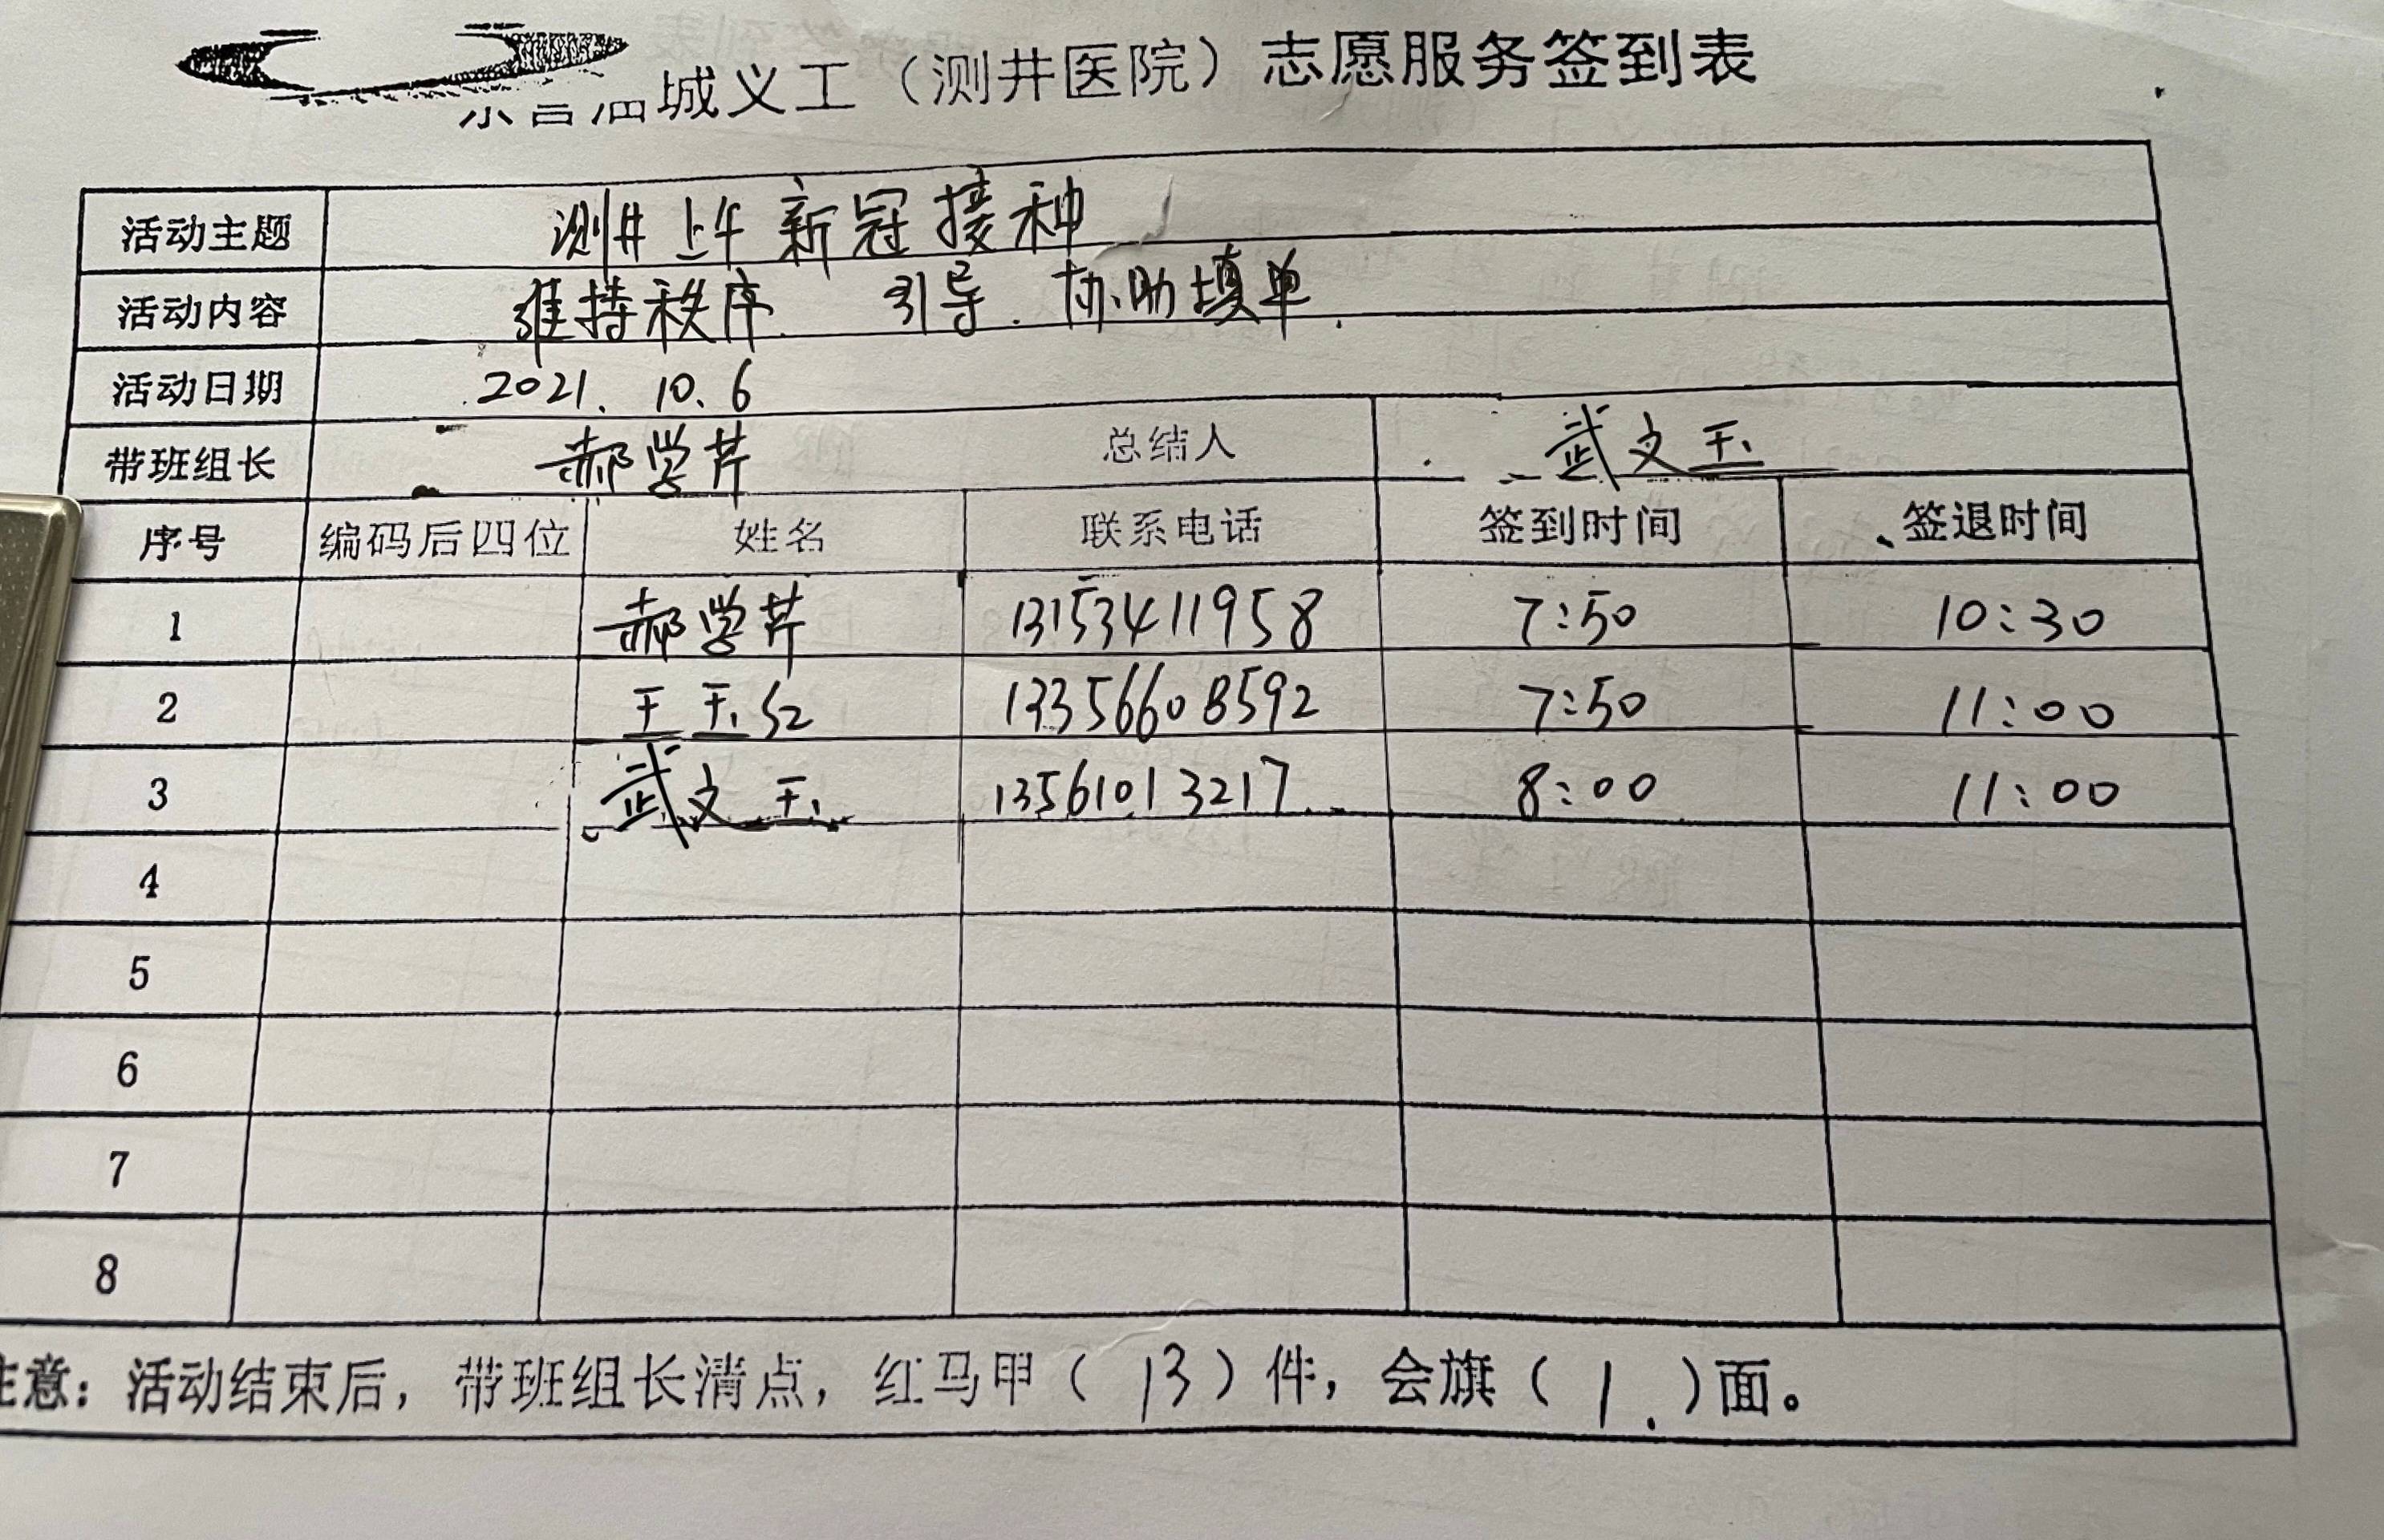 城义工（测井医院）志愿服务签到表
活动主题 测井上午新冠接种
活动内容 维持秩序. 引导. 协助填单.
活动日期 2021. 10. 6
带班组长 郝学芹 总结人 武文玉
序号 编码后四位 姓名 联系电话 签到时间 签退时间
1 郝学芹 13153411958 7:50 10:30
2 王玉红 13356608592 7:50 11:00
3 武文玉 13561013217 8:00 11:00
4
5
6
7
8
注意：活动结束后，带班组长清点，红马甲（13）件，会旗（1.）面。